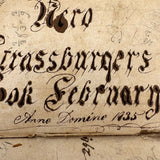 Nero
Strassburgers
Book February
Anno Domino 1835